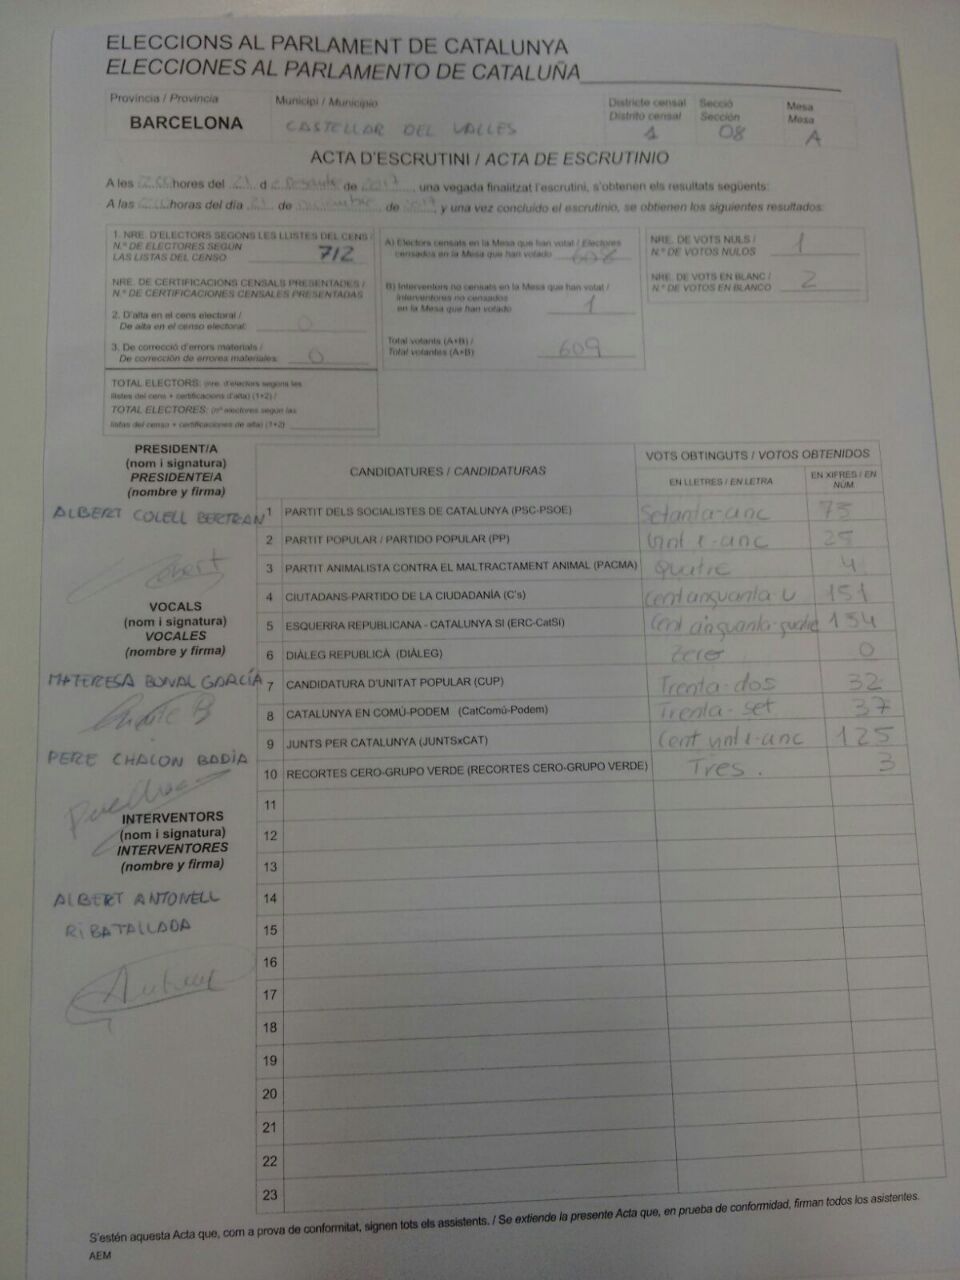 ELECCIONS AL PARLAMENT DE CATALUNYA
ELECCIONES AL PARLAMENTO DE CATALUÑA
Província / Provincia
BARCELONA
Municipi / Municipio
CASTELLAR DEL VALLES
Districte censal
Distrito censal
1
Secció
Sección
08
Mesa
Mesa
A
ACTA D'ESCRUTINI / ACTA DE ESCRUTINIO
A les hores del 21 d de 2017, una vegada finalitzat l'escrutini, s'obtenen els resultats següents:
A las horas del día 21 de diciembre de 2017, y una vez concluido el escrutinio, se obtienen los siguientes resultados:
1. NRE. D'ELECTORS SEGONS LES LLISTES DEL CENS /
N.º DE ELECTORES SEGÚN
LAS LISTAS DEL CENSO 712
NRE. DE CERTIFICACIONS CENSALS PRESENTADES /
N.º DE CERTIFICACIONES CENSALES PRESENTADAS
2. D'alta en el cens electoral /
De alta en el censo electoral: 0
3. De correcció d'errors materials /
De corrección de errores materiales: 0
TOTAL ELECTORS: (nre. d'electors segons les
llistes del cens + certificacions d'alta) (1+2) /
TOTAL ELECTORES: (nº electores según las
listas del censo + certificaciones de alta) (1+2)
A) Electors censats en la Mesa que han votat / Electores
censados en la Mesa que han votado 608
B) Interventors no censats en la Mesa que han votat /
Interventores no censados
en la Mesa que han votado 1
Total votants (A+B) /
Total votantes (A+B) 609
NRE. DE VOTS NULS /
N.º DE VOTOS NULOS 1
NRE. DE VOTS EN BLANC /
N.º DE VOTOS EN BLANCO 2
PRESIDENT/A
(nom i signatura)
PRESIDENTE/A
(nombre y firma)
ALBERT COLELL BERTRAN
VOCALS
(nom i signatura)
VOCALES
(nombre y firma)
M. TERESA BONAL GARCÍA
PERE CHACON BADÍA
INTERVENTORS
(nom i signatura)
INTERVENTORES
(nombre y firma)
ALBERT ANTONELL
RIBATALLADA
CANDIDATURES / CANDIDATURAS
VOTS OBTINGUTS / VOTOS OBTENIDOS
EN LLETRES / EN LETRA
EN XIFRES / EN
NÚM.
1 PARTIT DELS SOCIALISTES DE CATALUNYA (PSC-PSOE) Setanta-cinc 75
2 PARTIT POPULAR / PARTIDO POPULAR (PP) Vint-i-cinc 25
3 PARTIT ANIMALISTA CONTRA EL MALTRACTAMENT ANIMAL (PACMA) Quatre 4
4 CIUTADANS-PARTIDO DE LA CIUDADANÍA (C's) Cent cinquanta u 151
5 ESQUERRA REPUBLICANA - CATALUNYA SI (ERC-CatSí) Cent cinquanta-quatre 154
6 DIÀLEG REPUBLICÀ (DIÀLEG) Zero 0
7 CANDIDATURA D'UNITAT POPULAR (CUP) Trenta-dos 32
8 CATALUNYA EN COMÚ-PODEM (CatComú-Podem) Trenta-set 37
9 JUNTS PER CATALUNYA (JUNTSxCAT) Cent vint-i-cinc 125
10 RECORTES CERO-GRUPO VERDE (RECORTES CERO-GRUPO VERDE) Tres. 3
11
12
13
14
15
16
17
18
19
20
21
22
23
S'estén aquesta Acta que, com a prova de conformitat, signen tots els assistents. / Se extiende la presente Acta que, en prueba de conformidad, firman todos los asistentes.
AEM